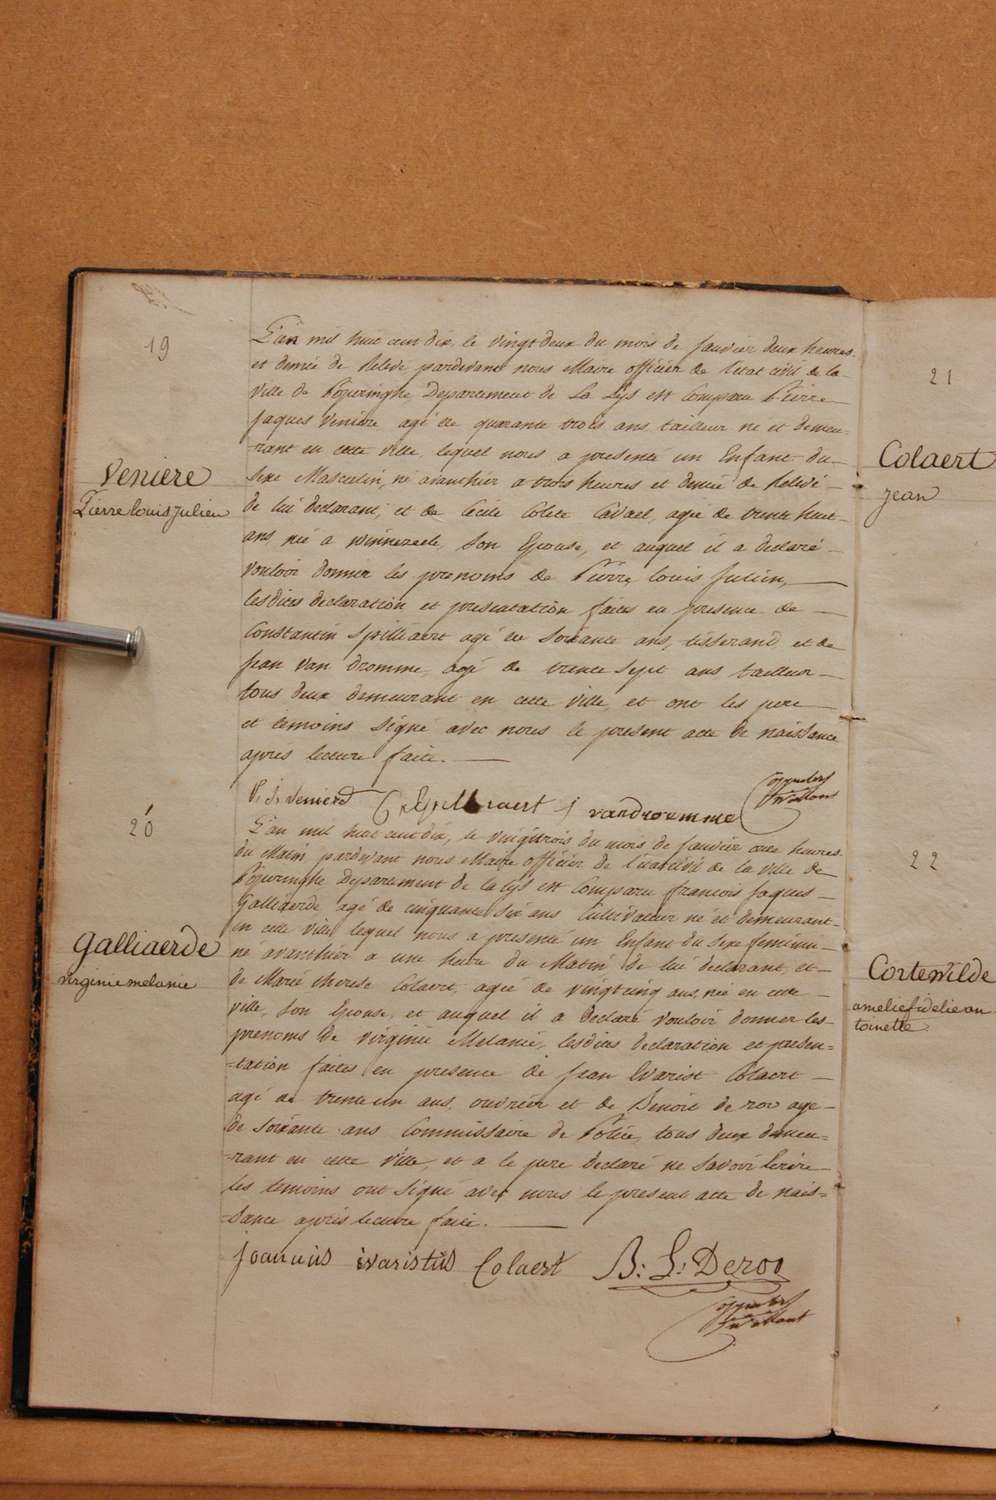 19
Veniere
Pierre louis Julien
L'an mil huit cent dix, le vingt deux du mois de Janvier deux heures
et demie de Relevé pardevant nous Maire officier de l'etat civil de la
ville de Poperinghe Departement de La Lys est Comparu Pierre
Jaques Veniere agé de quarante trois ans, tailleur né et demeu-
-rant en cette ville, lequel nous a presenté un Enfant du
Sexe Masculin, né avanthier a trois heures et demie de Relevé
de lui declarant, et de Cecile Colete Cavael, agée de trente huit
ans, née a winnezeele, Son Epouse, et auquel il a declaré
vouloir donner les prenoms de Pierre, louis Julien,
lesdites declaration et presentation faites en presence de
Constantin Spilliaert agé de Soixante ans, tisserand, et de
Jean Van Dromme, agé de trente Sept ans tailleur
tous deux demeurant en cette ville, et ont les pere
et temoins Signé avec nous le present acte de naissance
après lecture faite.
P. J. Veniere C. Spilliaert J vandromme
20
Galliaerde
virginie melanie
L'an mil huit cent dix, le vingt trois du mois de Janvier onze heures
du Matin, pardevant nous Maire officier de l'etat civil de la ville de
Poperinghe Departement de la Lys est Comparu francois Jaques
Galliaerde, agé de cinquante Six ans Cultivateur né et demeurant
en cette ville, lequel nous a presenté un Enfant du Sexe feminin
né avanthier a une heure du Matin, de lui declarant, et
de Marie therese Colaert, agée de vingtcinq ans, née en cette
ville, Son Epouse, et auquel il a declaré vouloir donner les
prenoms de virginie Melanie, lesdites declaration et presen=
=tation faites en presence de Jean Evarist Colaert
agé de trente un ans, ouvrier et de Benoit de roo age
de soixante ans Commissaire de Police, tous deux demeu=
=rant en cette ville, et a le pere declaré ne Savoir Ecrire
les temoins ont Signé avec nous le present acte de nais=
=sance après lecture faite.
Joannis ivaristus Colaert B: L: Deroo
21
Colaert
jean
22
Cortewilde
amelie fidelie an
toinette